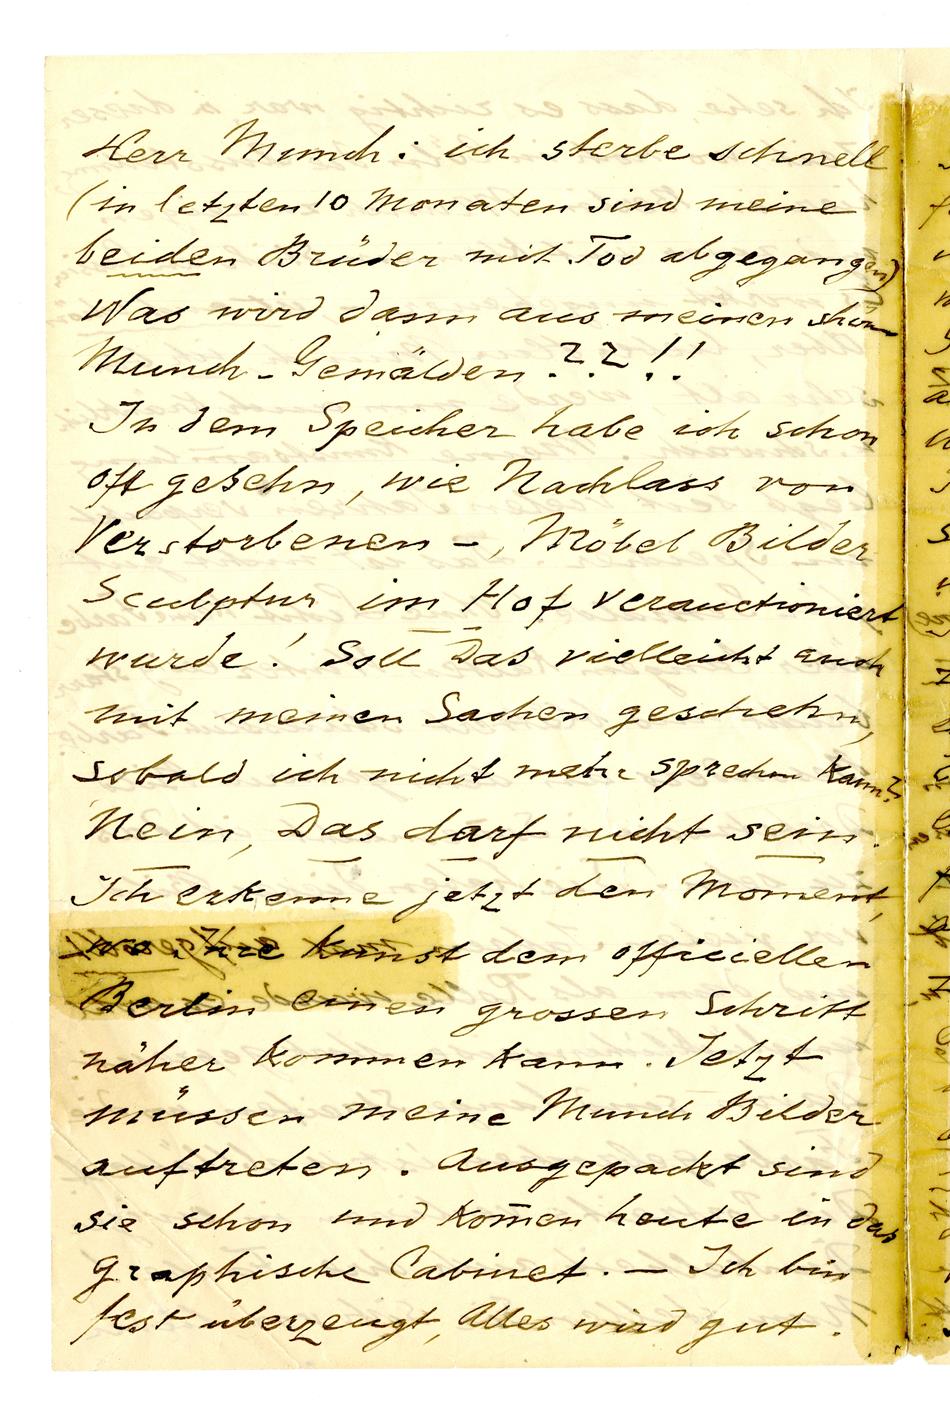 Herr Munch: ich sterbe schnell
(in letzten 10 Monaten sind meine
beiden Brüder mit Tod abgegangen)
Was wird dann aus meinen
Munch-Gemälden ??!!
In dem Speicher habe ich schon
oft gesehn, wie Nachlass von
Verstorbenen –, Möbel Bilder
Sculptur im Hof verauctioniert
wurde! Soll Das vielleicht auch
mit meinen Sachen geschehn,
sobald ich nicht mehr sprechen kann?
Nein, Das darf nicht sein.
Ich erkenne jetzt den Moment,
wo Ihre Kunst dem officiellen
Berlin einen grossen Schritt
näher kommen kann. Jetzt
müssen meine Munch Bilder
auftreten. Ausgepackt sind
sie schon und kom̄en heute in das
graphische Cabinet. – Ich bin
fest überzeugt, Alles wird gut.